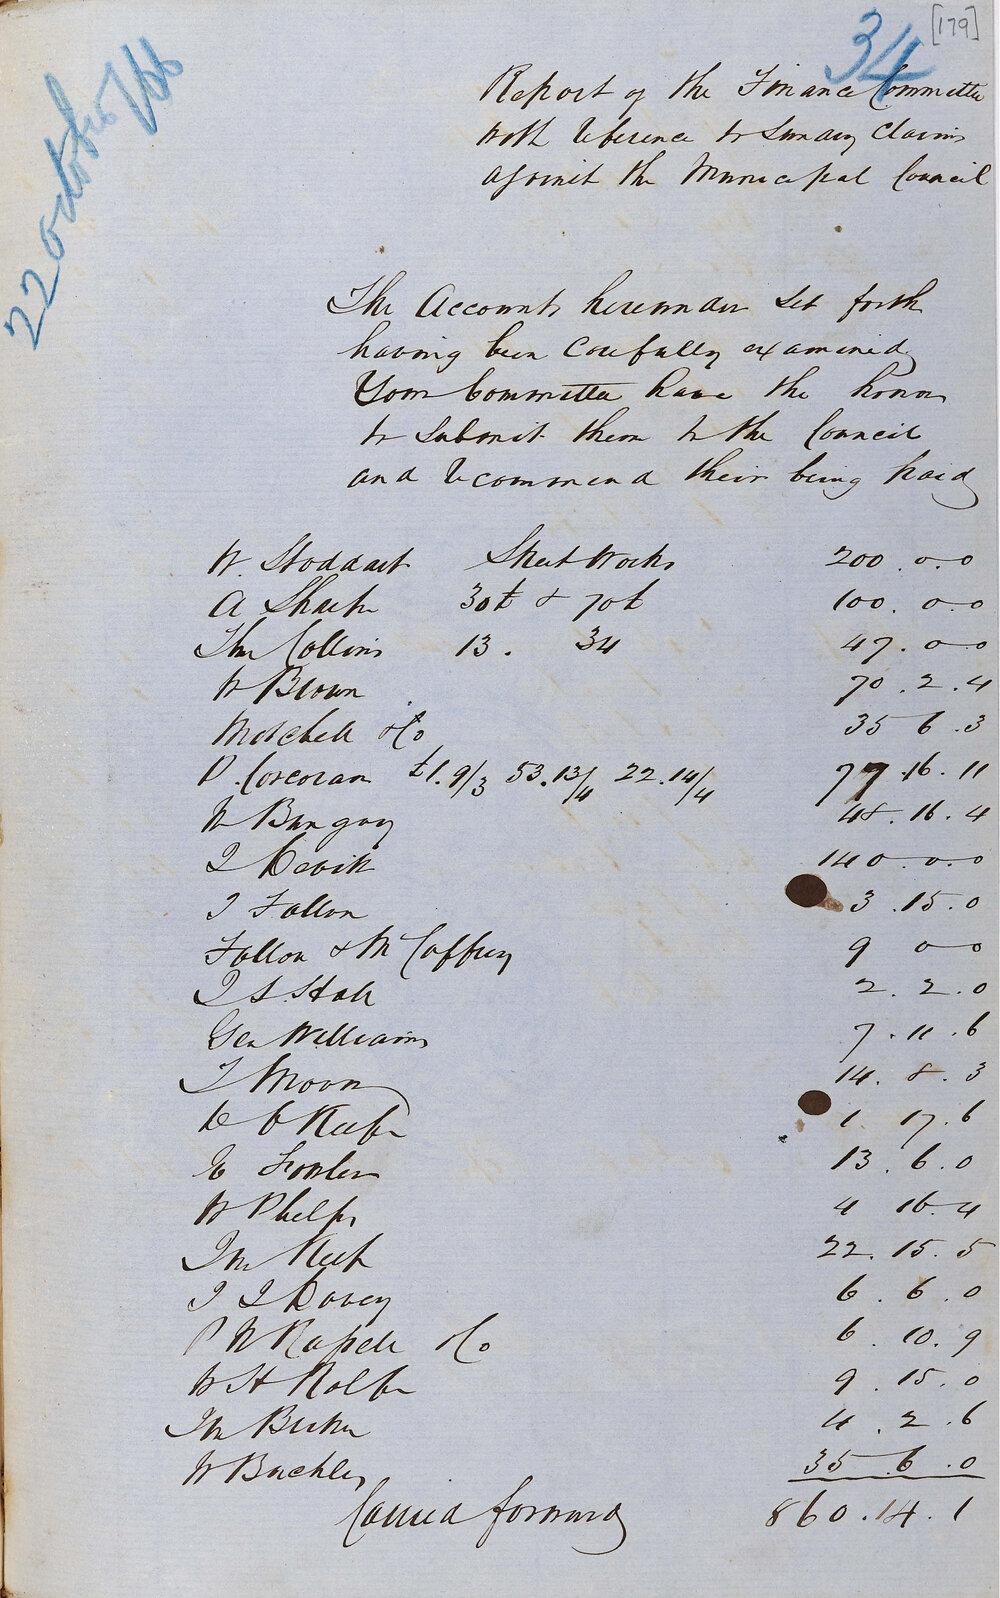 [179]
34
22 October/66
Report of the Finance Committee
with reference to Sundry Claims
against the Municipal Council
The Accounts hereunder set forth
having been carefully examined
Your Committee have the honor
to submit them to the Council
and recommend their being paid
W. Stoddart Street Works 200.0.0
A Sharp 30£ & 70£ 100.0.0
Thos Collins 13. 34 47.0.0
W Brown 70.2.4
Mitchell & Co 35 6.3
P. Corcoran £1.9/3 53.13/4 22.14/4 77.16.11
W Bungay 48.16.4
J Devitt 140.0.0
J Fallon 3.15.0
Fallon & McCaffrey 9 0 0
J S. Hall 2.2.0
Geo Williams 7.11.6
J Moon 14.8.3
D O Keefe 1 17.6
E Fowler 13.6.0
W Phelps 4 16.4
Jno Keep 22.15.5
J J Davey 6.6.0
P N & Co 6.10.9
W H Rolfe 9.15.0
4.2.6
W Buckley 35.6.0
Carried forward 860.14.1